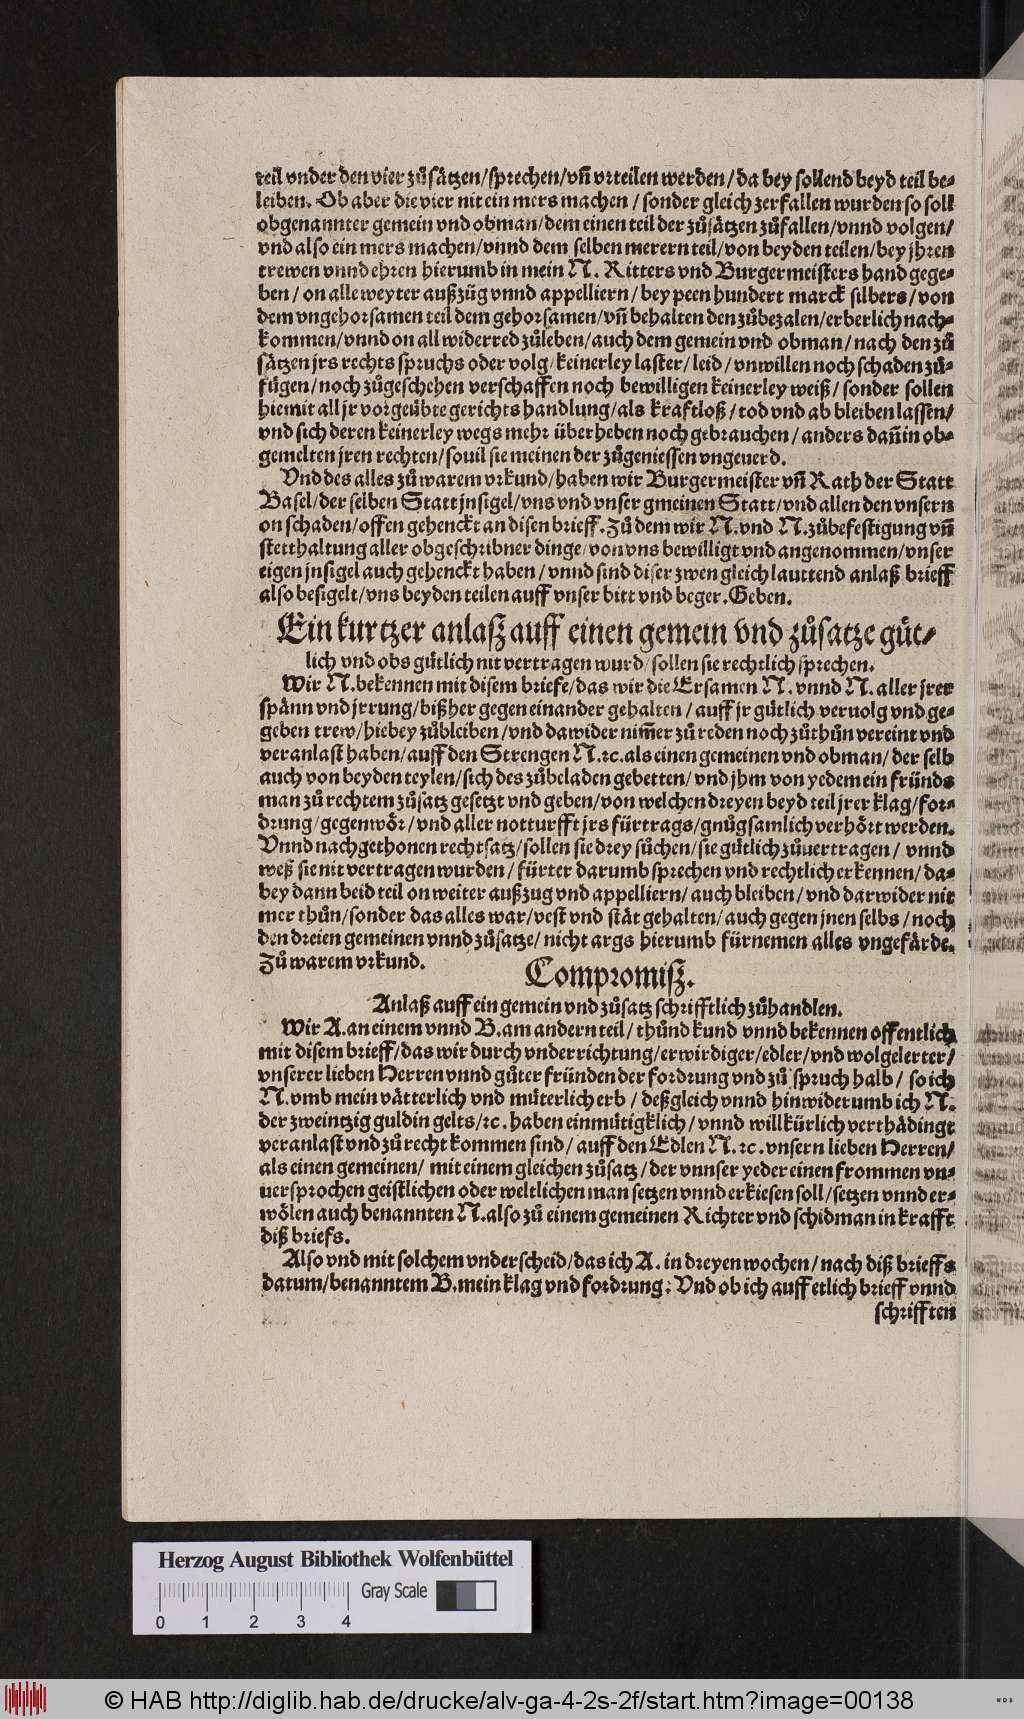 teil vnder den vier zůsätzen/sprechen/vñ vrteilen werden/da bey sollend beyd teil be-
leiben. Ob aber die vier nit ein mers machen/sonder gleich zerfallen wurden so soll
obgenannter gemein vnd obman/dem einen teil der zůsätzen zůfallen/vnnd volgen/
vnd also ein mers machen/vnnd dem selben merern teil/von beyden teilen/bey jhren
trewen vnnd ehren hierumb in mein N. Ritters vnd Burgermeisters hand gege-
ben/on alle weyter außzüg vnnd appelliern/bey peen hundert marck silbers/von
dem vngehorsamen teil dem gehorsamen/vñ behalten den zůbezalen/erberlich nach-
kommen/vnnd on all widerred zůleben/auch dem gemein vnd obman/nach den zů
sätzen jrs rechts spruchs oder volg/keinerley laster/leid/vnwillen noch schaden zů-
fügen/noch zůgeschehen verschaffen noch bewilligen keinerley weiß/sonder sollen
hiemit all jr vorgeübte gerichts handlung/als kraftloß/tod vnd ab bleiben lassen/
vnd sich deren keinerley wegs mehr überheben noch gebrauchen/anders dañ in ob-
gemelten jren rechten/souil sie meinen der zůgeniessen vngeuerd.
Vnd des alles zů warem vrkund/haben wir Burgermeister vñ Rath der Statt
Basel/der selben Statt jnsigel/vns vnd vnser gmeinen Statt/vnd allen den vnsern
on schaden/offen gehenckt an disen brieff. Zů dem wir N. vnd N. zůbefestigung vñ
stetthaltung aller obgeschribner dinge/von vns bewilligt vnd angenommen/vnser
eigen jnsigel auch gehenckt haben/vnnd sind diser zwen gleich lauttend anlaß brieff
also besigelt/vns beyden teilen auff vnser bitt vnd beger. Geben.
Ein kurtzer anlasz auff einen gemein vnd zůsatze güt-
lich vnd obs gütlich nit vertragen wurd/sollen sie rechtlich sprechen.
Wir N. bekennen mit disem briefe/das wir die Ersamen N. vnnd N. aller jrer
spänn vnd jrrung/bißher gegen einander gehalten/auff jr gütlich veruolg vnd ge-
geben trew/hiebey zůbleiben/vnd dawider nim̃er zů reden noch zůthůn vereint vnd
veranlast haben/auff den Strengen N. ꝛc. als einen gemeinen vnd obman/der selb
auch von beyden teylen/sich des zůbeladen gebetten/vnd jhm von yedem ein fründs
man zů rechtem zůsatz gesetzt vnd geben/von welchen dreyen beyd teil jrer klag/for-
drung/gegenwör/vnd aller notturfft jrs fürtrags/gnůgsamlich verhört werden.
Vnnd nachgethonen rechtsatz/sollen sie drey sůchen/sie gütlich zůuertragen/vnnd
weß sie nit vertragen wurden/fürter darumb sprechen vnd rechtlich erkennen/da-
bey dann beid teil on weiter außzug vnd appelliern/auch bleiben/vnd darwider nit
mer thůn/sonder das alles war/vest vnd stät gehalten/auch gegen jnen selbs/noch
den dreien gemeinen vnnd zůsatze/nicht args hierumb fürnemen alles vngefärde.
Zů warem vrkund.
Compromisz.
Anlaß auff ein gemein vnd zůsatz schrifftlich zůhandlen.
Wir A. an einem vnnd B. am andern teil/thůnd kund vnnd bekennen offentlich
mit disem brieff/das wir durch vnderrichtung/erwirdiger/edler/vnd wolgelerter/
vnserer lieben Herren vnnd gůter fründen der fordrung vnd zů spruch halb/so ich
N. vmb mein vätterlich vnd müterlich erb/deßgleich vnnd hinwiderumb ich N.
der zweintzig guldin gelts/ꝛc. haben einmütigklich/vnnd willkürlich verthädingt
veranlast vnd zů recht kommen sind/auff den Edlen N. ꝛc. vnsern lieben Herren/
als einen gemeinen/mit einem gleichen zůsatz/der vnnser yeder einen frommen vn-
uersprochen geistlichen oder weltlichen man setzen vnnd erkiesen soll/setzen vnnd er-
wölen auch benannten N. also zů einem gemeinen Richter vnd schidman in krafft
diß briefs.
Also vnd mit solchem vnderscheid/das ich A. in dreyen wochen/nach diß brieffs
datum/benanntem B. mein klag vnd fordrung: Vnd ob ich auff etlich brieff vnnd
schrifften
Herzog August Bibliothek Wolfenbüttel
Gray Scale
0 1 2 3 4
© HAB http://diglib.hab.de/drucke/alv-ga-4-2s-2f/start.htm?image=00138